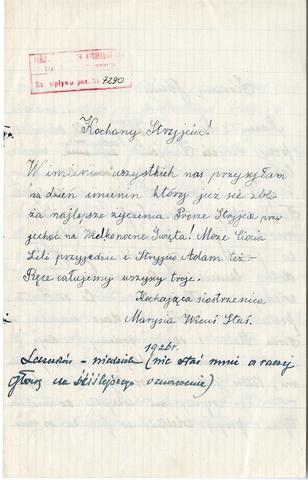 Ks. wpływu poz. Nr 7290
Kochany Stryjciu!
W imieniu wszystkich nas przysyłam
na dzień imienin który już się zbli
ża najlepsze życzenia. Proszę Stryjcia przy
jechać na Wielkanocne Święta! Może Ciocia
Lilé przyjedzie i Stryjcio Adam też –
Ręce całujemy wszyscy troje.
Kochająca siostrzenica
Marysia Wicuś Staś.
1926r.
– niedziela (nie stać mnie a raczej
głowę na ściślejsze oznaczenie)